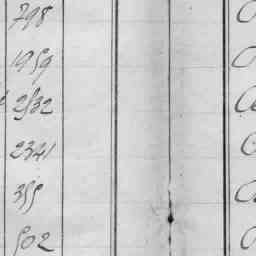 798
1959
2532
2341
355
502